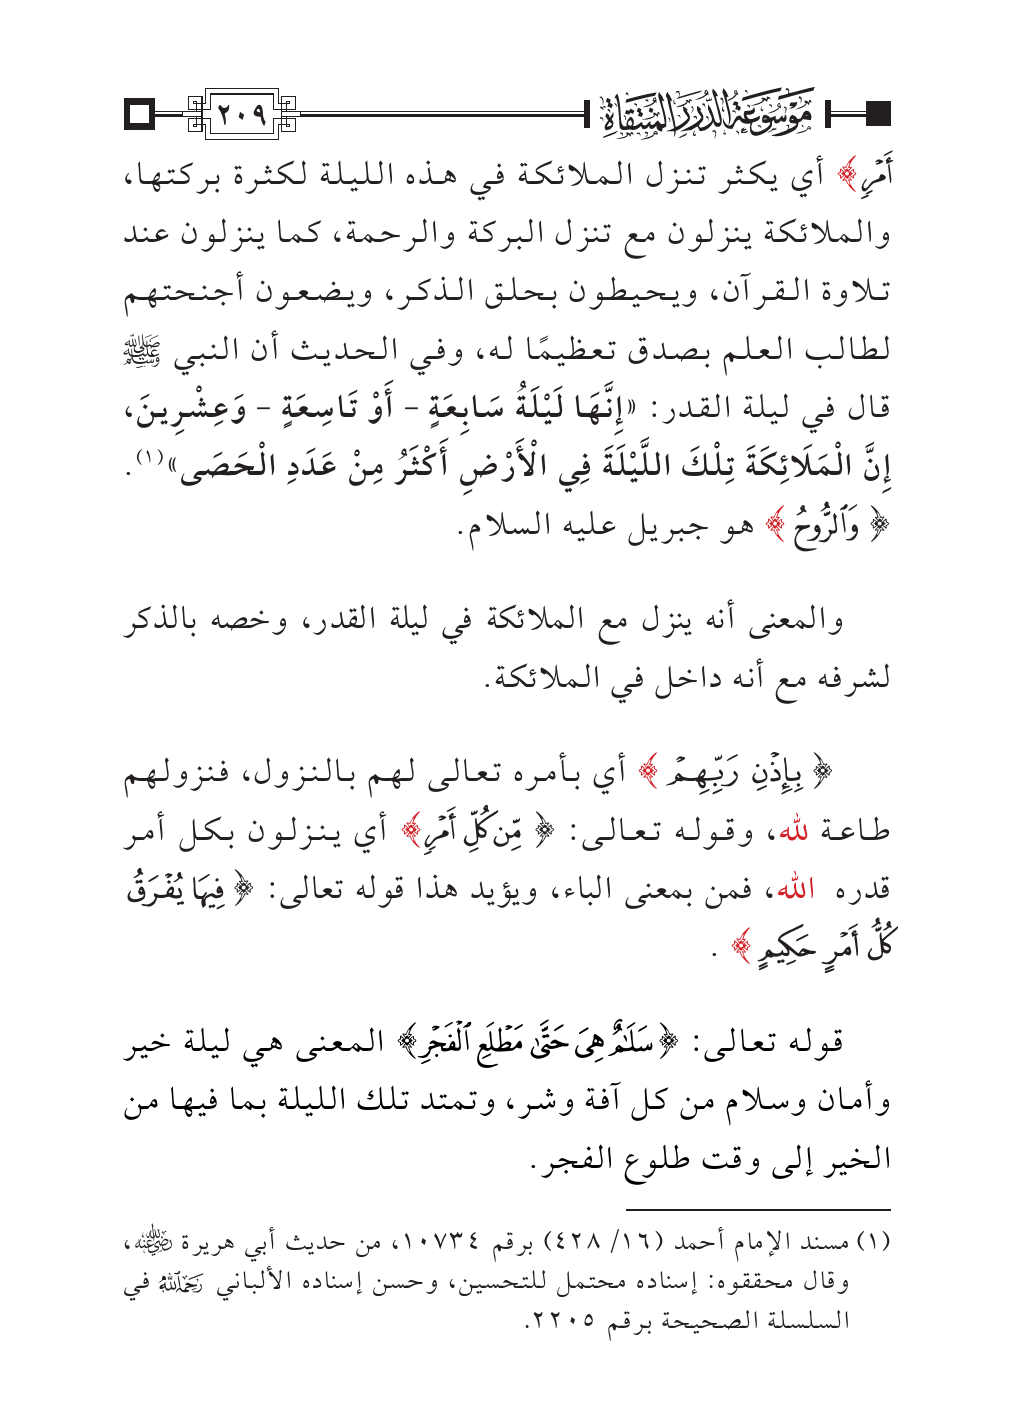 مَوْسُوعَةُ الدُّرَرِ المُنْتَقَاةِ ٢٠٩
أَمْرٍ﴾ أي يكثر تنزل الملائكة في هذه الليلة لكثرة بركتها،
والملائكة ينزلون مع تنزل البركة والرحمة، كما ينزلون عند
تلاوة القرآن، ويحيطون بحلق الذكر، ويضعون أجنحتهم
لطالب العلم بصدق تعظيمًا له، وفي الحديث أن النبي ﷺ
قال في ليلة القدر: «إِنَّهَا لَيْلَةُ سَابِعَةٍ - أَوْ تَاسِعَةٍ - وَعِشْرِينَ،
إِنَّ الْمَلَائِكَةَ تِلْكَ اللَّيْلَةَ فِي الْأَرْضِ أَكْثَرُ مِنْ عَدَدِ الْحَصَى»(١).
﴿ وَٱلرُّوحُ ﴾ هو جبريل عليه السلام.
والمعنى أنه ينزل مع الملائكة في ليلة القدر، وخصه بالذكر
لشرفه مع أنه داخل في الملائكة.
﴿ بِإِذْنِ رَبِّهِمْ ﴾ أي بأمره تعالى لهم بالنزول، فنزولهم
طاعة لله، وقوله تعالى: ﴿ مِّن كُلِّ أَمْرٍ﴾ أي ينزلون بكل أمر
قدره الله، فمن بمعنى الباء، ويؤيد هذا قوله تعالى: ﴿ فِيهَا يُفْرَقُ
كُلُّ أَمْرٍ حَكِيمٍ ﴾ .
قوله تعالى: ﴿ سَلَٰمٌ هِىَ حَتَّىٰ مَطْلَعِ ٱلْفَجْرِ﴾ المعنى هي ليلة خير
وأمان وسلام من كل آفة وشر، وتمتد تلك الليلة بما فيها من
الخير إلى وقت طلوع الفجر.
(١) مسند الإمام أحمد (١٦/ ٤٢٨) برقم ١٠٧٣٤، من حديث أبي هريرة رضي الله عنه،
وقال محققوه: إسناده محتمل للتحسين، وحسن إسناده الألباني رحمه الله في
السلسلة الصحيحة برقم ٢٢٠٥.